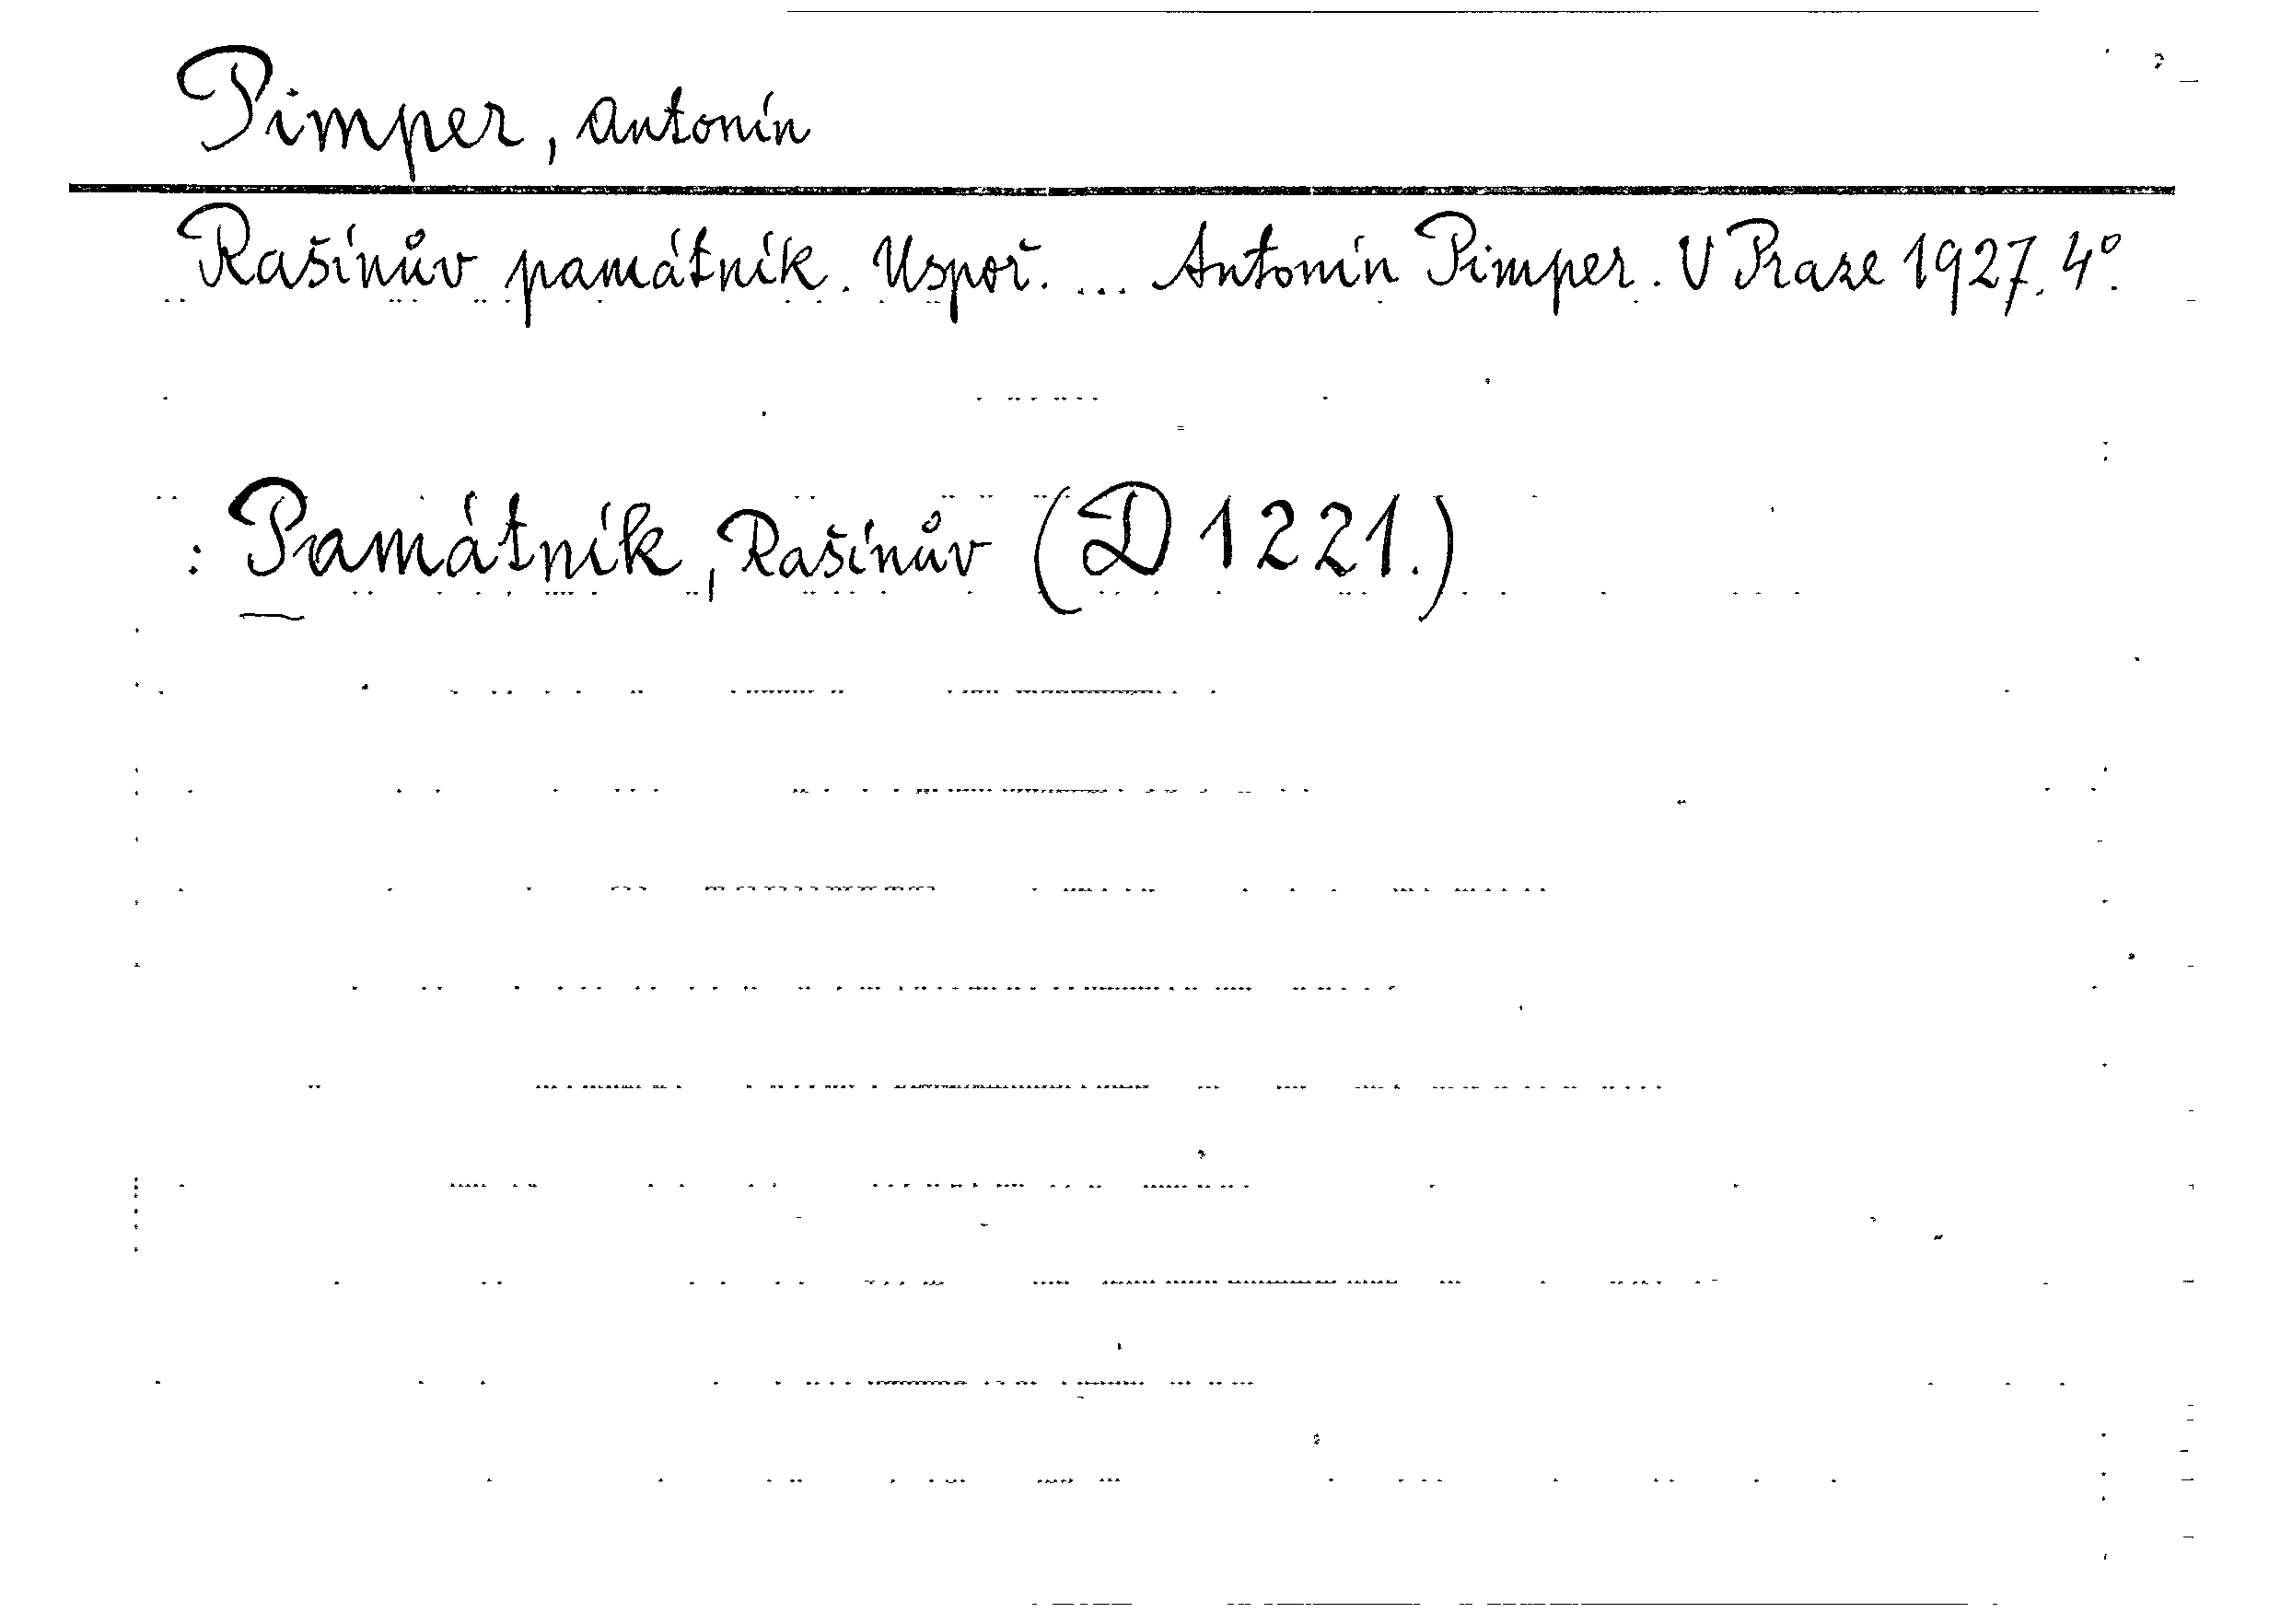 Pimper, Antonín
Rašínův památník. Uspoř. ... Antonín Pimper. V Praze 1927. 4°.
: Památník, Rašínův (D 1221.)